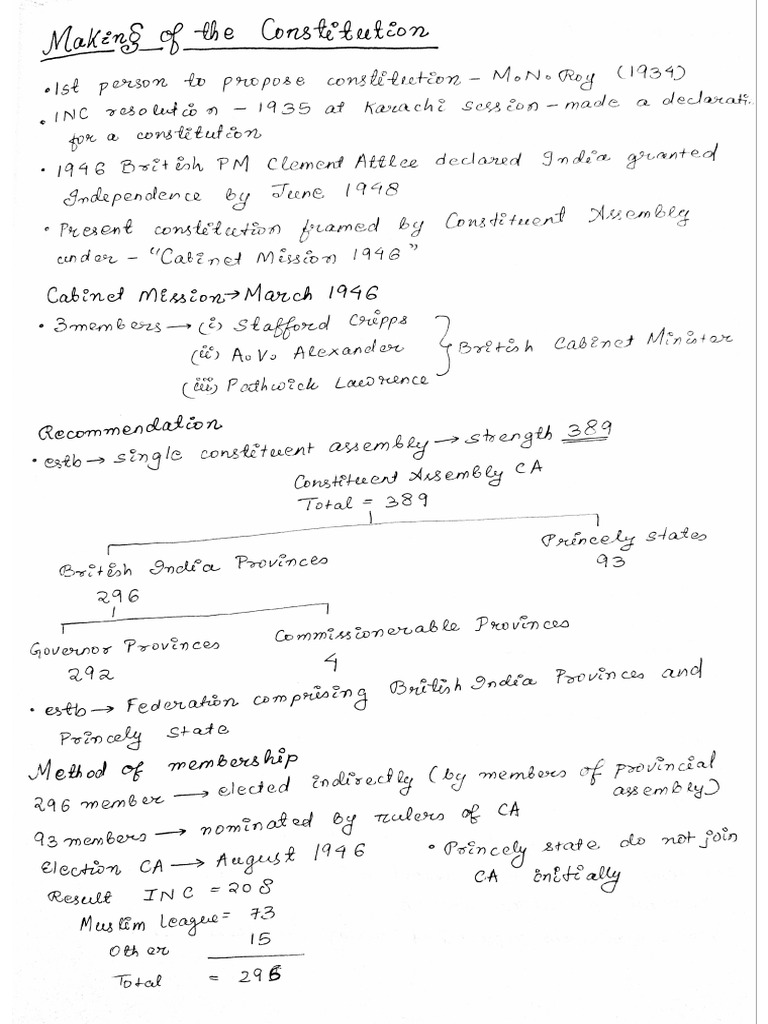 Making of the Constitution
• 1st person to propose constitution – M.N. Roy (1934)
• INC resolution – 1935 at Karachi session – made a declarati..
for a constitution
• 1946 British PM Clement Attlee declared India granted
Independence by June 1948
• Present constitution framed by Constituent Assembly
under – "Cabinet Mission 1946"
Cabinet Mission → March 1946
• 3 members → (i) Stafford Cripps
(ii) A.V. Alexander } British Cabinet Minister
(iii) Pathwick Lawrence
Recommendation
• estb → single constituent assembly → strength 389
Constituent Assembly CA
Total = 389
British India Provinces Princely States
296 93
Governor Provinces Commissionerable Provinces
292 4
• estb → Federation comprising British India Provinces and
Princely State
Method of membership
296 member → elected indirectly (by members of provincial
assembly)
93 members → nominated by rulers of CA
Election CA → August 1946 • Princely state do not join
CA initially
Result INC = 208
Muslim League = 73
Other 15
Total = 296